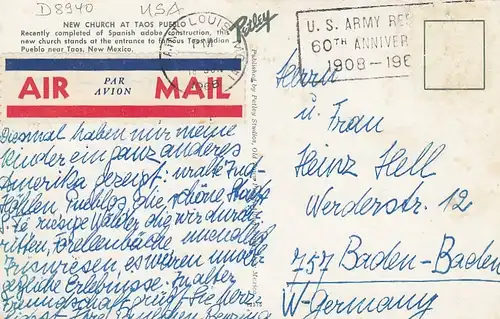 D8940 USA
NEW CHURCH AT TAOS PUEBLO
Recently completed of Spanish adobe construction, this
new church stands at the entrance to famous Taos Indian
Pueblo near Taos, New Mexico.
Petley
ST. LOUIS
1968
U.S. ARMY RES
60TH ANNIVER
1908-196
AIR PAR AVION MAIL
Published by Petley Studios,
Diesmal haben mir meine
Kinder ein ganz anderes
Amerika gezeigt: uralte Ind-
Höhlen, Pueblos, die schöne Stadt
riesige Wälder, die wir durch-
ritten, Forellenbäche unendlich
es waren unver-
gessliche Erlebnisse. In alter
Freundschaft grüßt Sie herz-
lichst Ihre
Herrn
u. Frau
Heinz Hell
Werderstr. 12
757 Baden-Baden
W-Germany